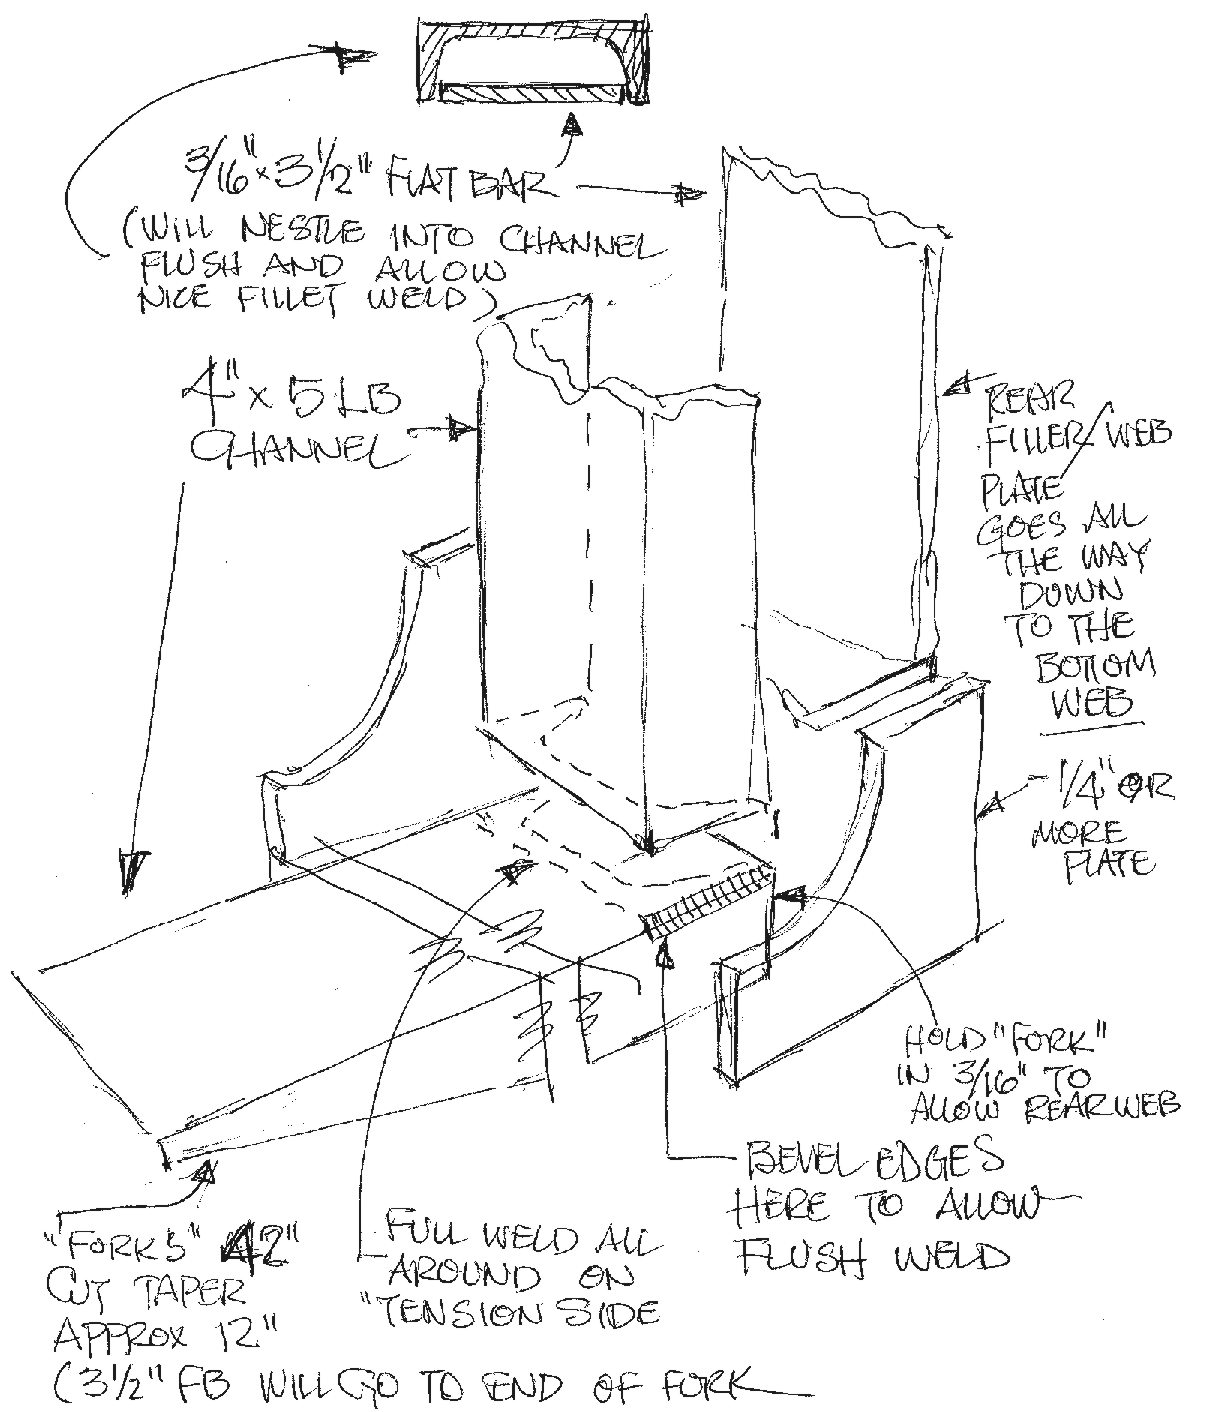 3/16" x 3 1/2" FLAT BAR
(WILL NESTLE INTO CHANNEL
FLUSH AND ALLOW
NICE FILLET WELD)
4" x 5 LB
CHANNEL
REAR
FILLER/WEB
PLATE
GOES ALL
THE WAY
DOWN
TO THE
BOTTOM
WEB
1/4" OR
MORE
PLATE
HOLD "FORK"
IN 3/16" TO
ALLOW REAR WEB
BEVEL EDGES
HERE TO ALLOW
FLUSH WELD
FULL WELD ALL
AROUND ON
"TENSION SIDE
"FORKS" 42"
CUT TAPER
APPROX 12"
(3 1/2" FB WILL GO TO END OF FORK